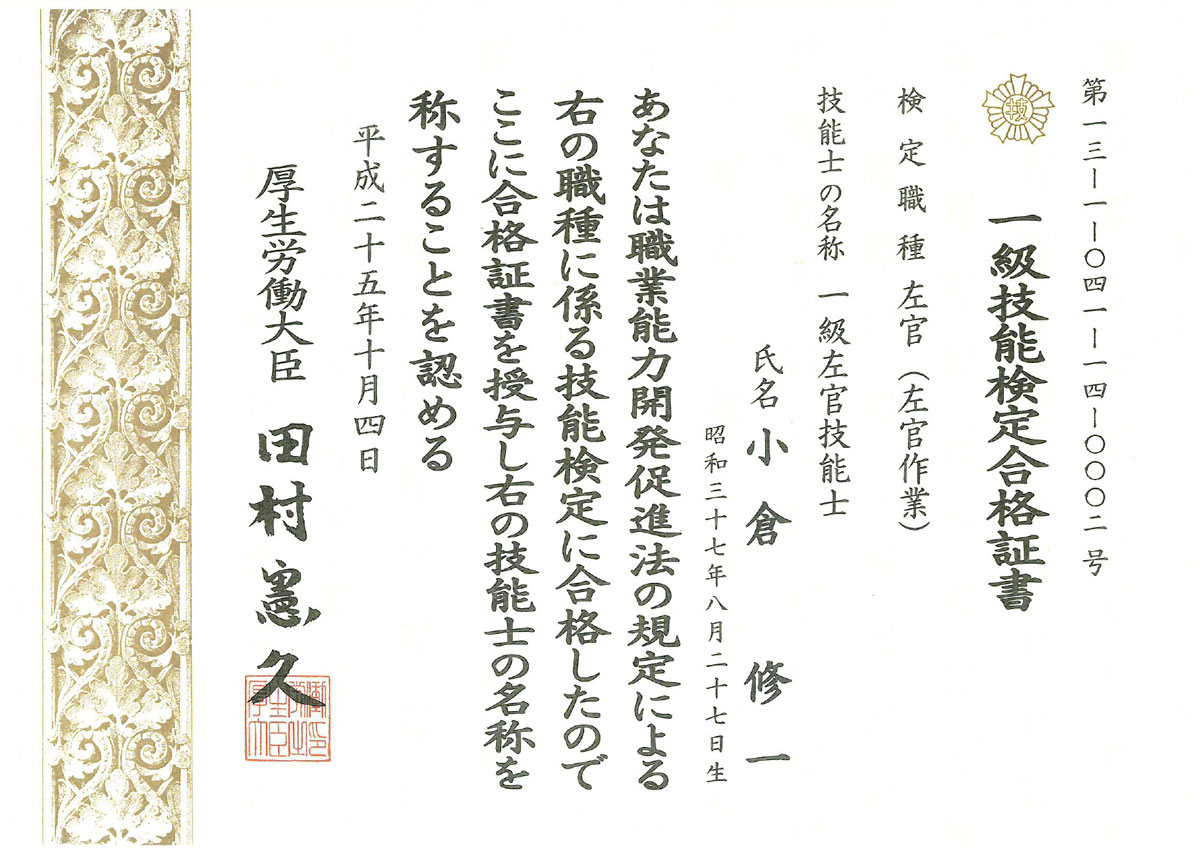 第一三―一―〇四一―一四―〇〇〇二号
技
一級技能検定合格証書
検定職種 左官（左官作業）
技能士の名称 一級左官技能士
氏名 小倉 修一
昭和三十七年八月二十七日生
あなたは職業能力開発促進法の規定による
右の職種に係る技能検定に合格したので
ここに合格証書を授与し右の技能士の名称を
称することを認める
平成二十五年十月四日
厚生労働大臣 田村憲久